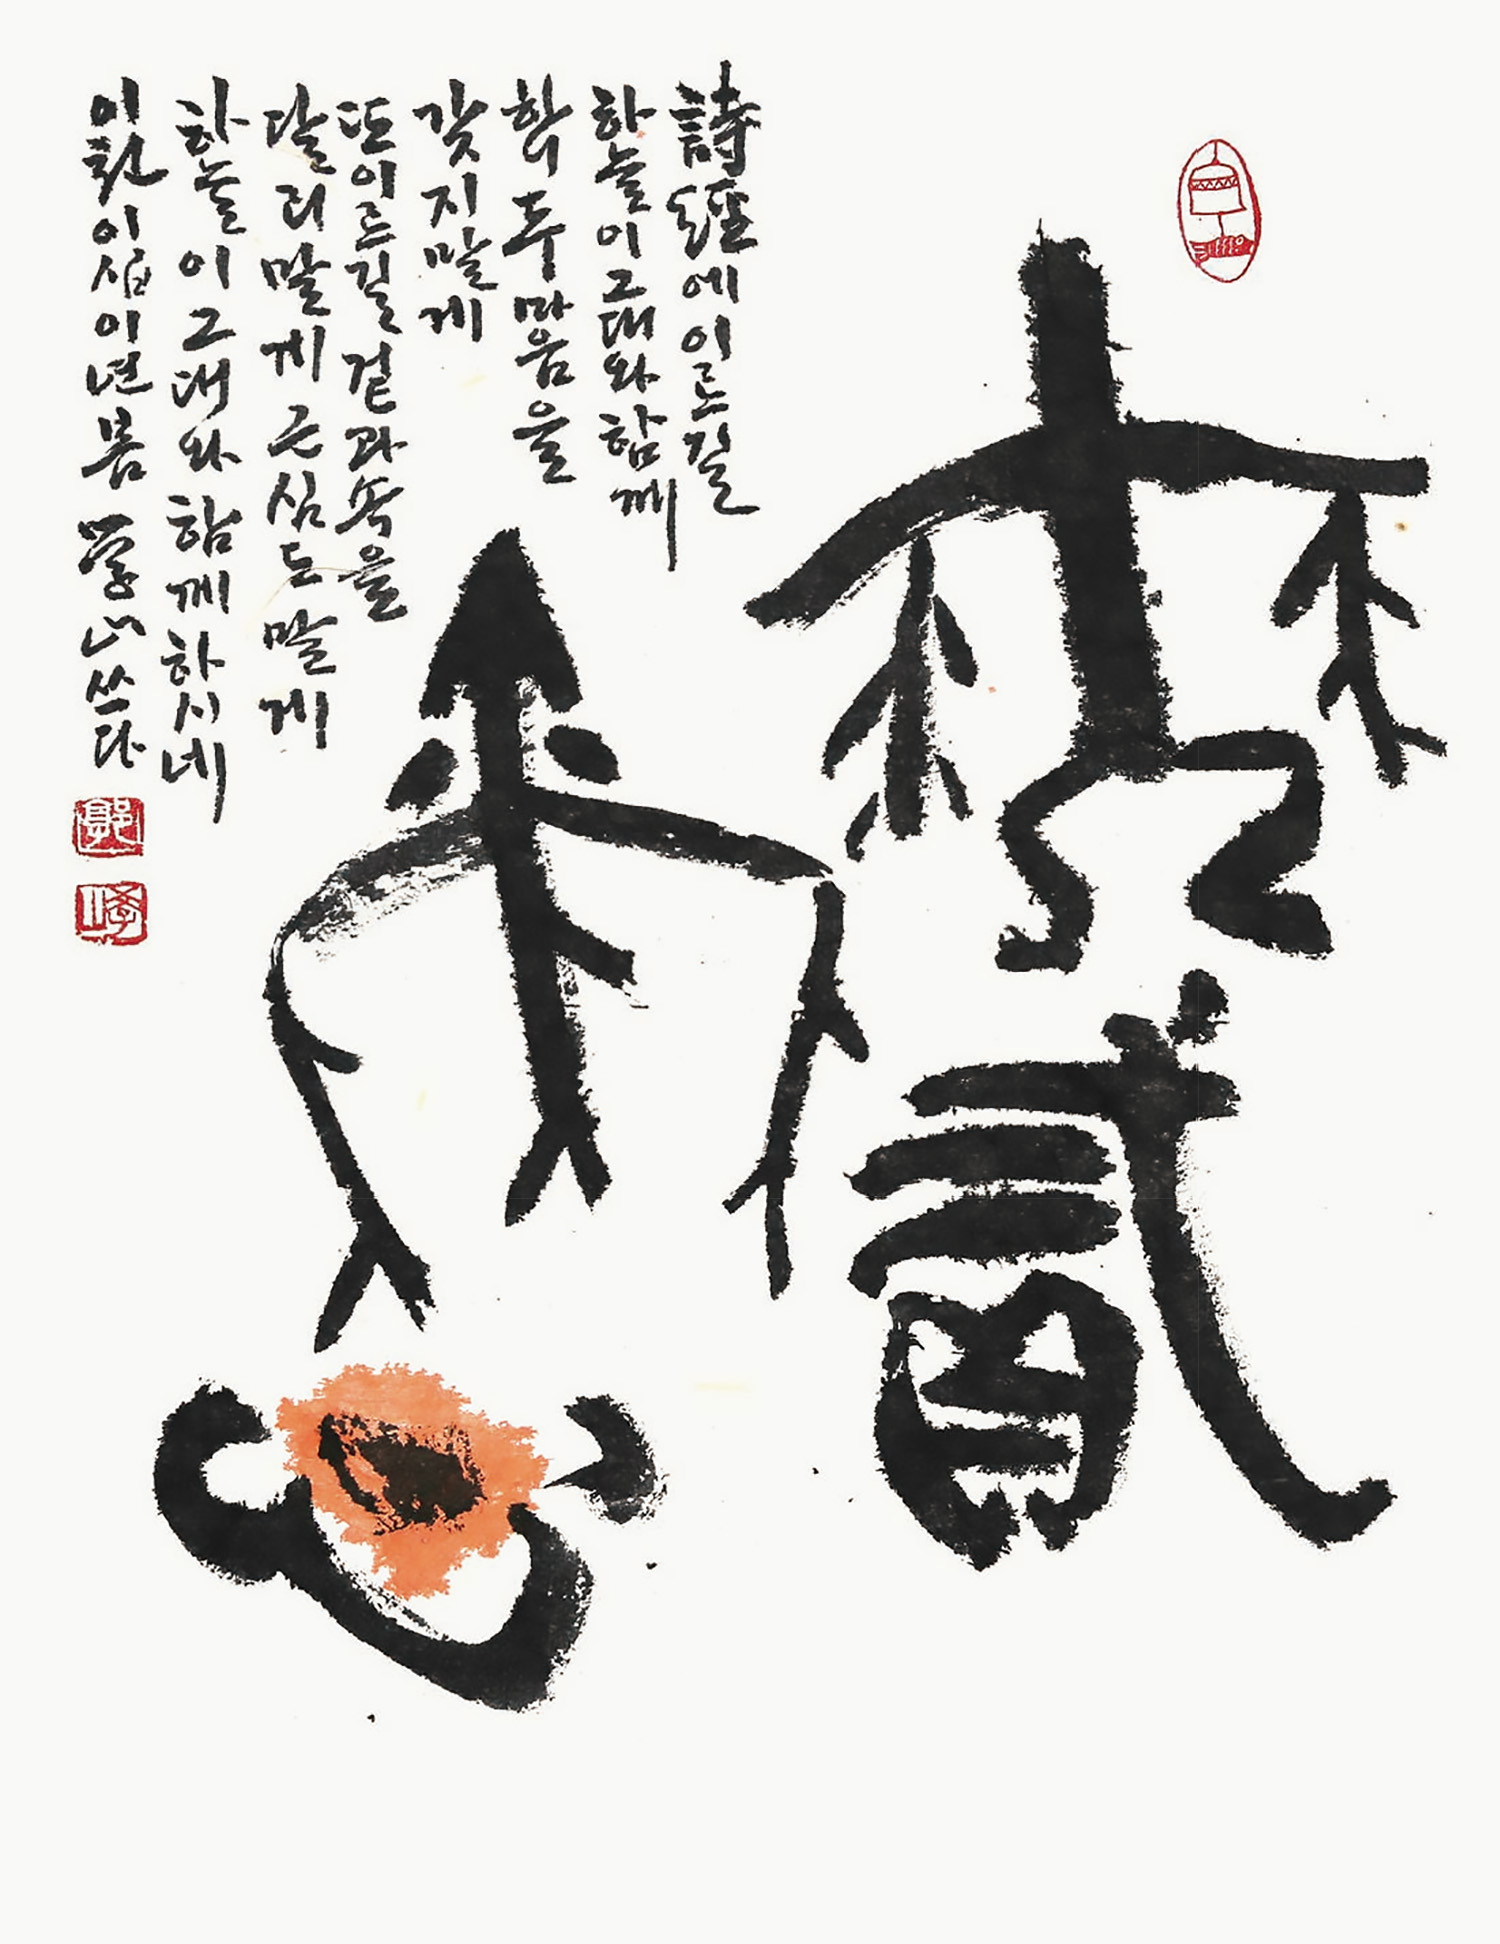 無貳
爾心
詩經에 이르길
하늘이 그대와 함께
하니 두 마음을
갖지 말게
또 이르길 겉과 속을
달리 말게 근심도 말게
하늘이 그대와 함께 하시네
이천이십이년 봄 學山 쓰다